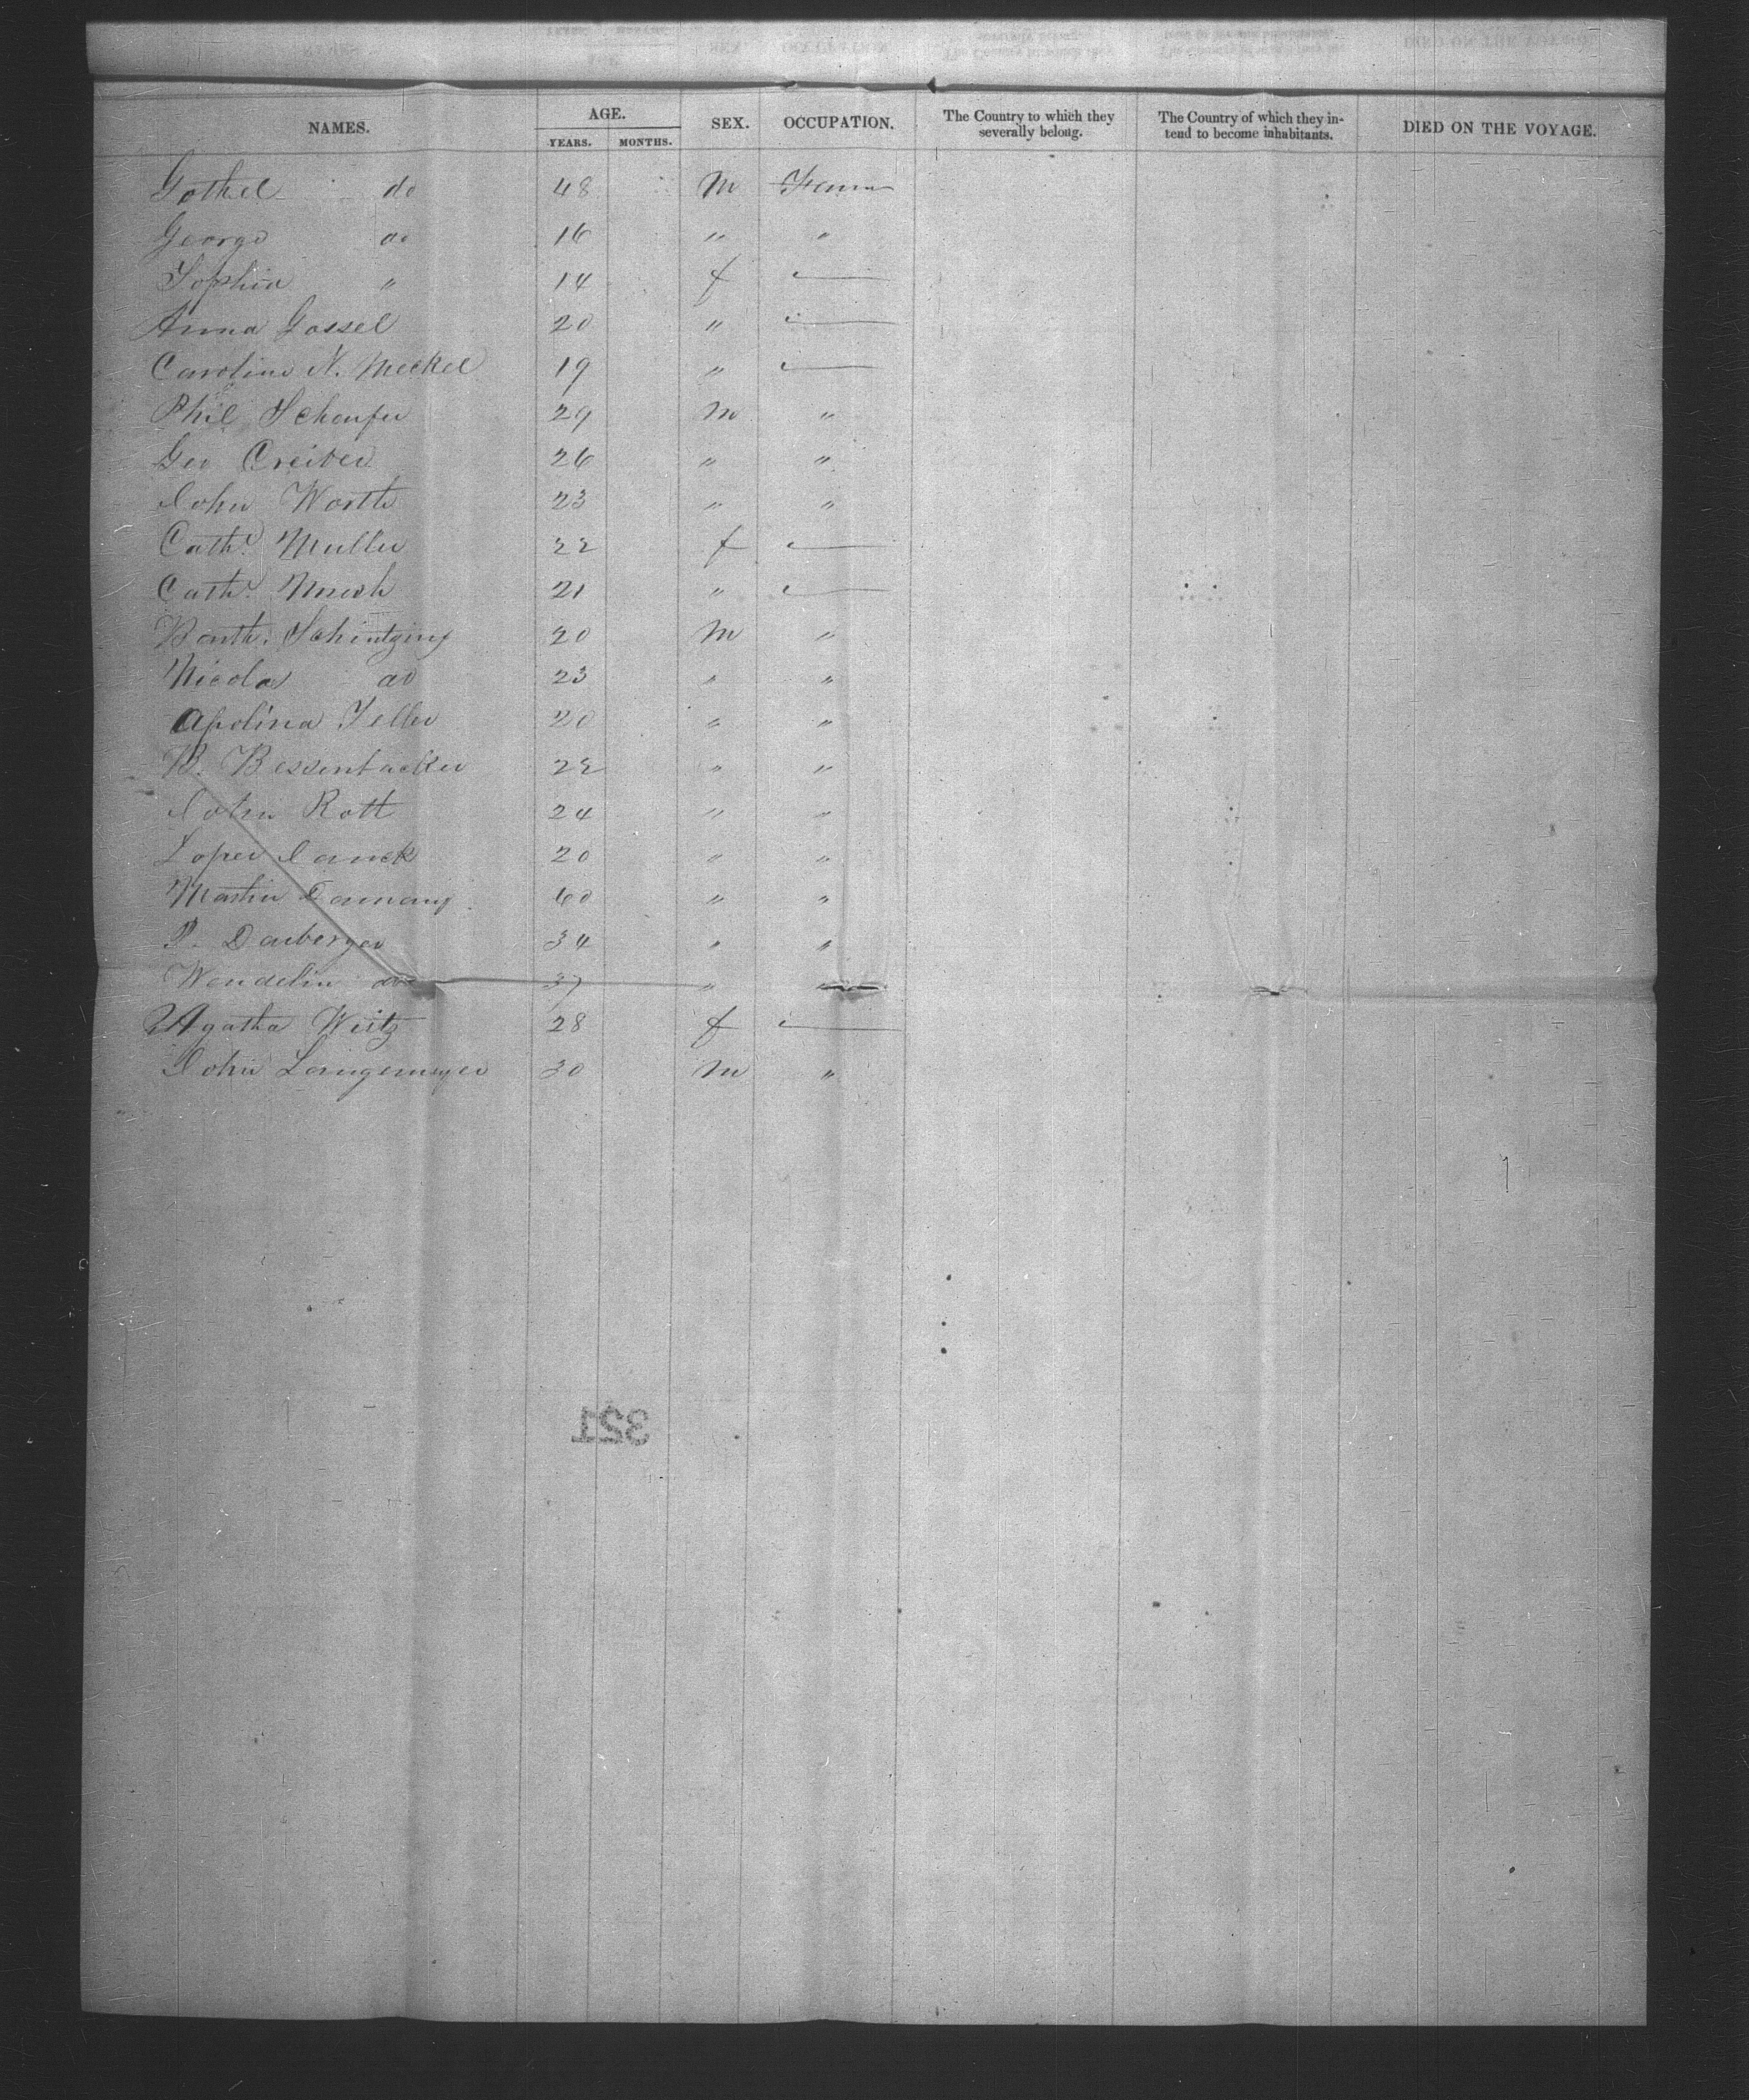 NAMES. AGE. YEARS. MONTHS. SEX. OCCUPATION. The Country to which they severally belong. The Country of which they intend to become inhabitants. DIED ON THE VOYAGE.
Gothel do 48 M Farmer
George do 16 " "
Sophia " 14 f —
Anna Gossel 20 " —
Caroline N. Meckel 19 " —
Phil Schaufer 29 M "
Geo Creiber 26 " "
John Worth 23 " "
Cath. Muller 22 f —
Cath. 21 " —
Barth. Schintzing 20 M "
Nicola do 23 " "
Apolina Teller 20 " "
B. Bessenbacker 22 " "
John Rott 24 " "
20 " "
Martin 60 " "
P. Dauberger 34 " "
Wendelin do 37 " "
Agatha Weitz 28 f —
John Langemeyer 30 M "
321